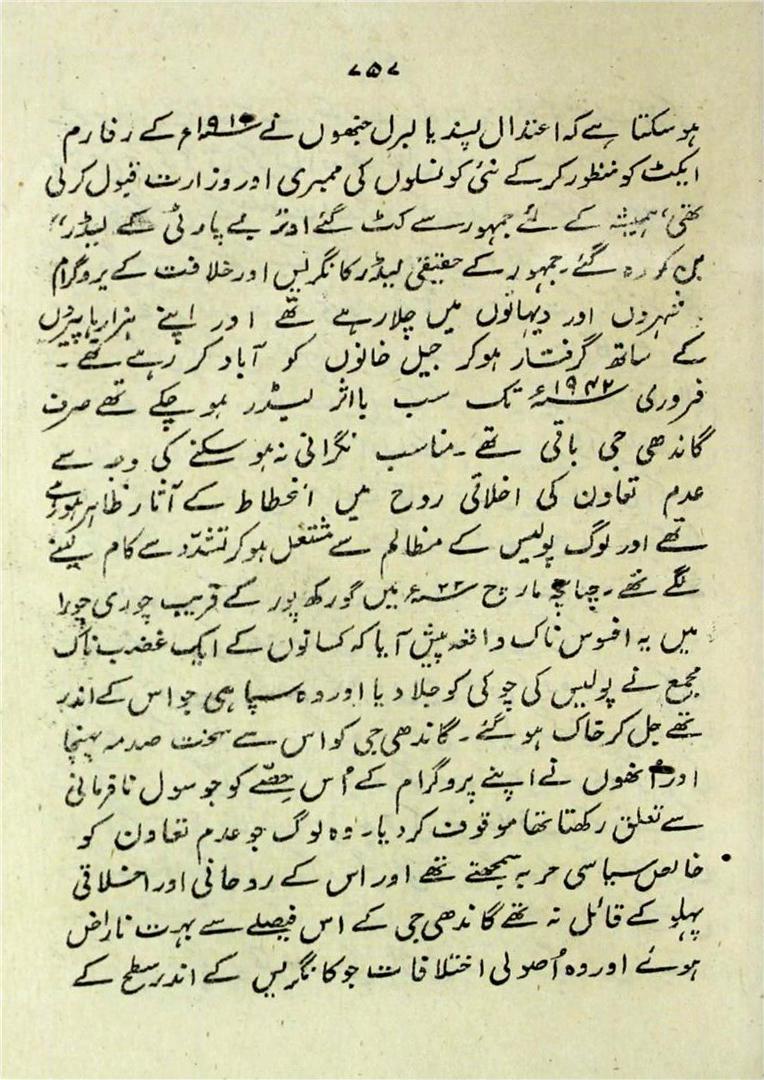 ۷۵۷
ہو سکتا ہے کہ اعتدال پسند یا لبرل جنھوں نے ۱۹۱۰ء کے رفارم
ایکٹ کو منظور کرکے نئی کونسلوں کی ممبری اور وزارت قبول کرلی
تھی، ہمیشہ کے لئے جمہور سے کٹ گئے اور بے پارٹی کے لیڈر"
بن کر رہ گئے۔ جمہور کے حقیقی لیڈر کانگریس اور خلافت کے پروگرام
شہروں اور دیہاتوں میں چلا رہے تھے اور اپنے ہزارہا پیروں
کے ساتھ گرفتار ہوکر جیل خانوں کو آباد کر رہے تھے۔
فروری ۱۹۴۲ء تک سب بااثر لیڈر ہو چکے تھے صرف
گاندھی جی باقی تھے۔ مناسب نگرانی نہ ہو سکنے کی وجہ سے
عدم تعاون کی اخلاقی روح میں انحطاط کے آثار ظاہر ہورہے
تھے اور لوگ پولیس کے مظالم سے مشتعل ہوکر تشدّد سے کام لینے
لگے تھے۔ چنانچہ مارچ ۲۲ء میں گورکھ پور کے قریب چوری چورا
میں یہ افسوس ناک واقعہ پیش آیا کہ کسانوں کے ایک غضب ناک
مجمع نے پولیس کی چوکی کو جلا دیا اور وہ سپاہی جو اس کے اندر
تھے جل کر خاک ہو گئے۔ گاندھی جی کو اس سے سخت صدمہ پہنچا
اور اُنھوں نے اپنے پروگرام کے اُس حصّے کو جو سول نافرمانی
سے تعلق رکھتا تھا موقوف کردیا۔ وہ لوگ جو عدم تعاون کو
خالص سیاسی حربہ سمجھتے تھے اور اس کے روحانی اور اخلاقی
پہلو کے قائل نہ تھے گاندھی جی کے اس فیصلے سے بہت ناراض
ہوئے اور وہ اُصولی اختلافات جو کانگریس کے اندر سطح کے